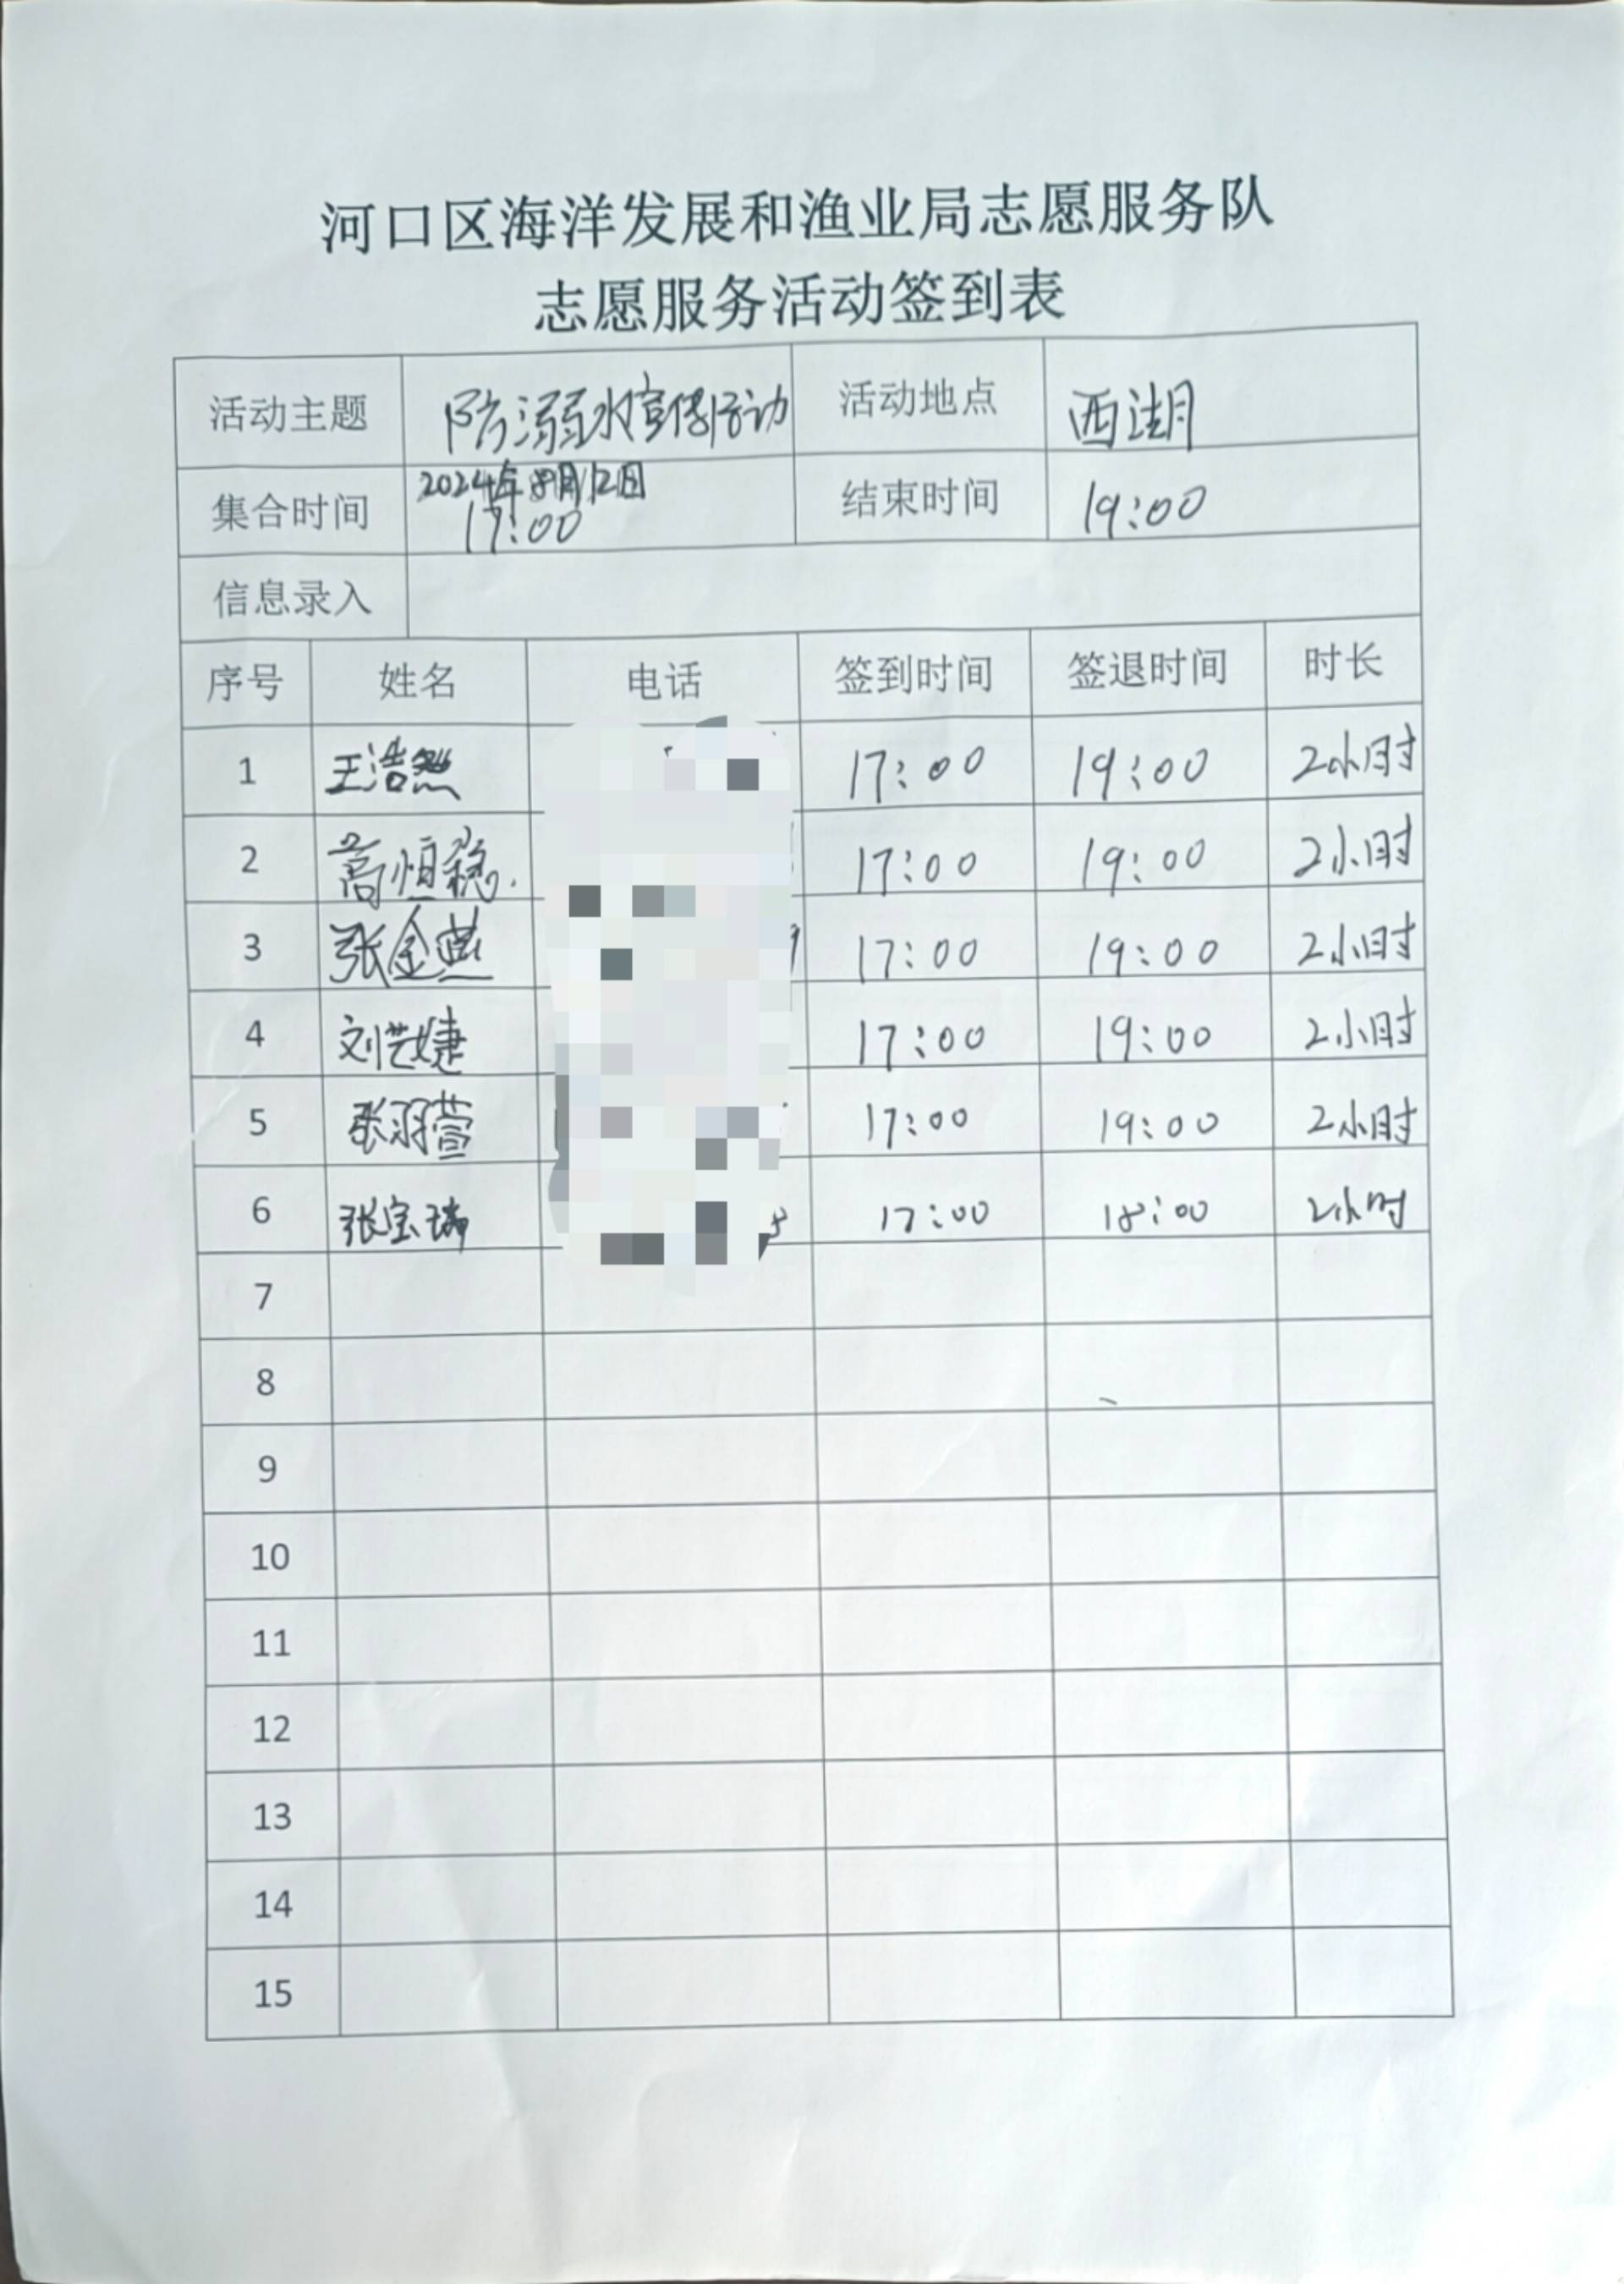 河口区海洋发展和渔业局志愿服务队
志愿服务活动签到表
活动主题 防溺水宣传活动 活动地点 西湖
集合时间 2024年8月12日 17:00 结束时间 19:00
信息录入
序号 姓名 电话 签到时间 签退时间 时长
1 王浩然 17:00 19:00 2小时
2 高恒稳 17:00 19:00 2小时
3 张金燕 17:00 19:00 2小时
4 刘艺婕 17:00 19:00 2小时
5 张羽萱 17:00 19:00 2小时
6 张宝瑞 17:00 18:00 2小时
7
8
9
10
11
12
13
14
15